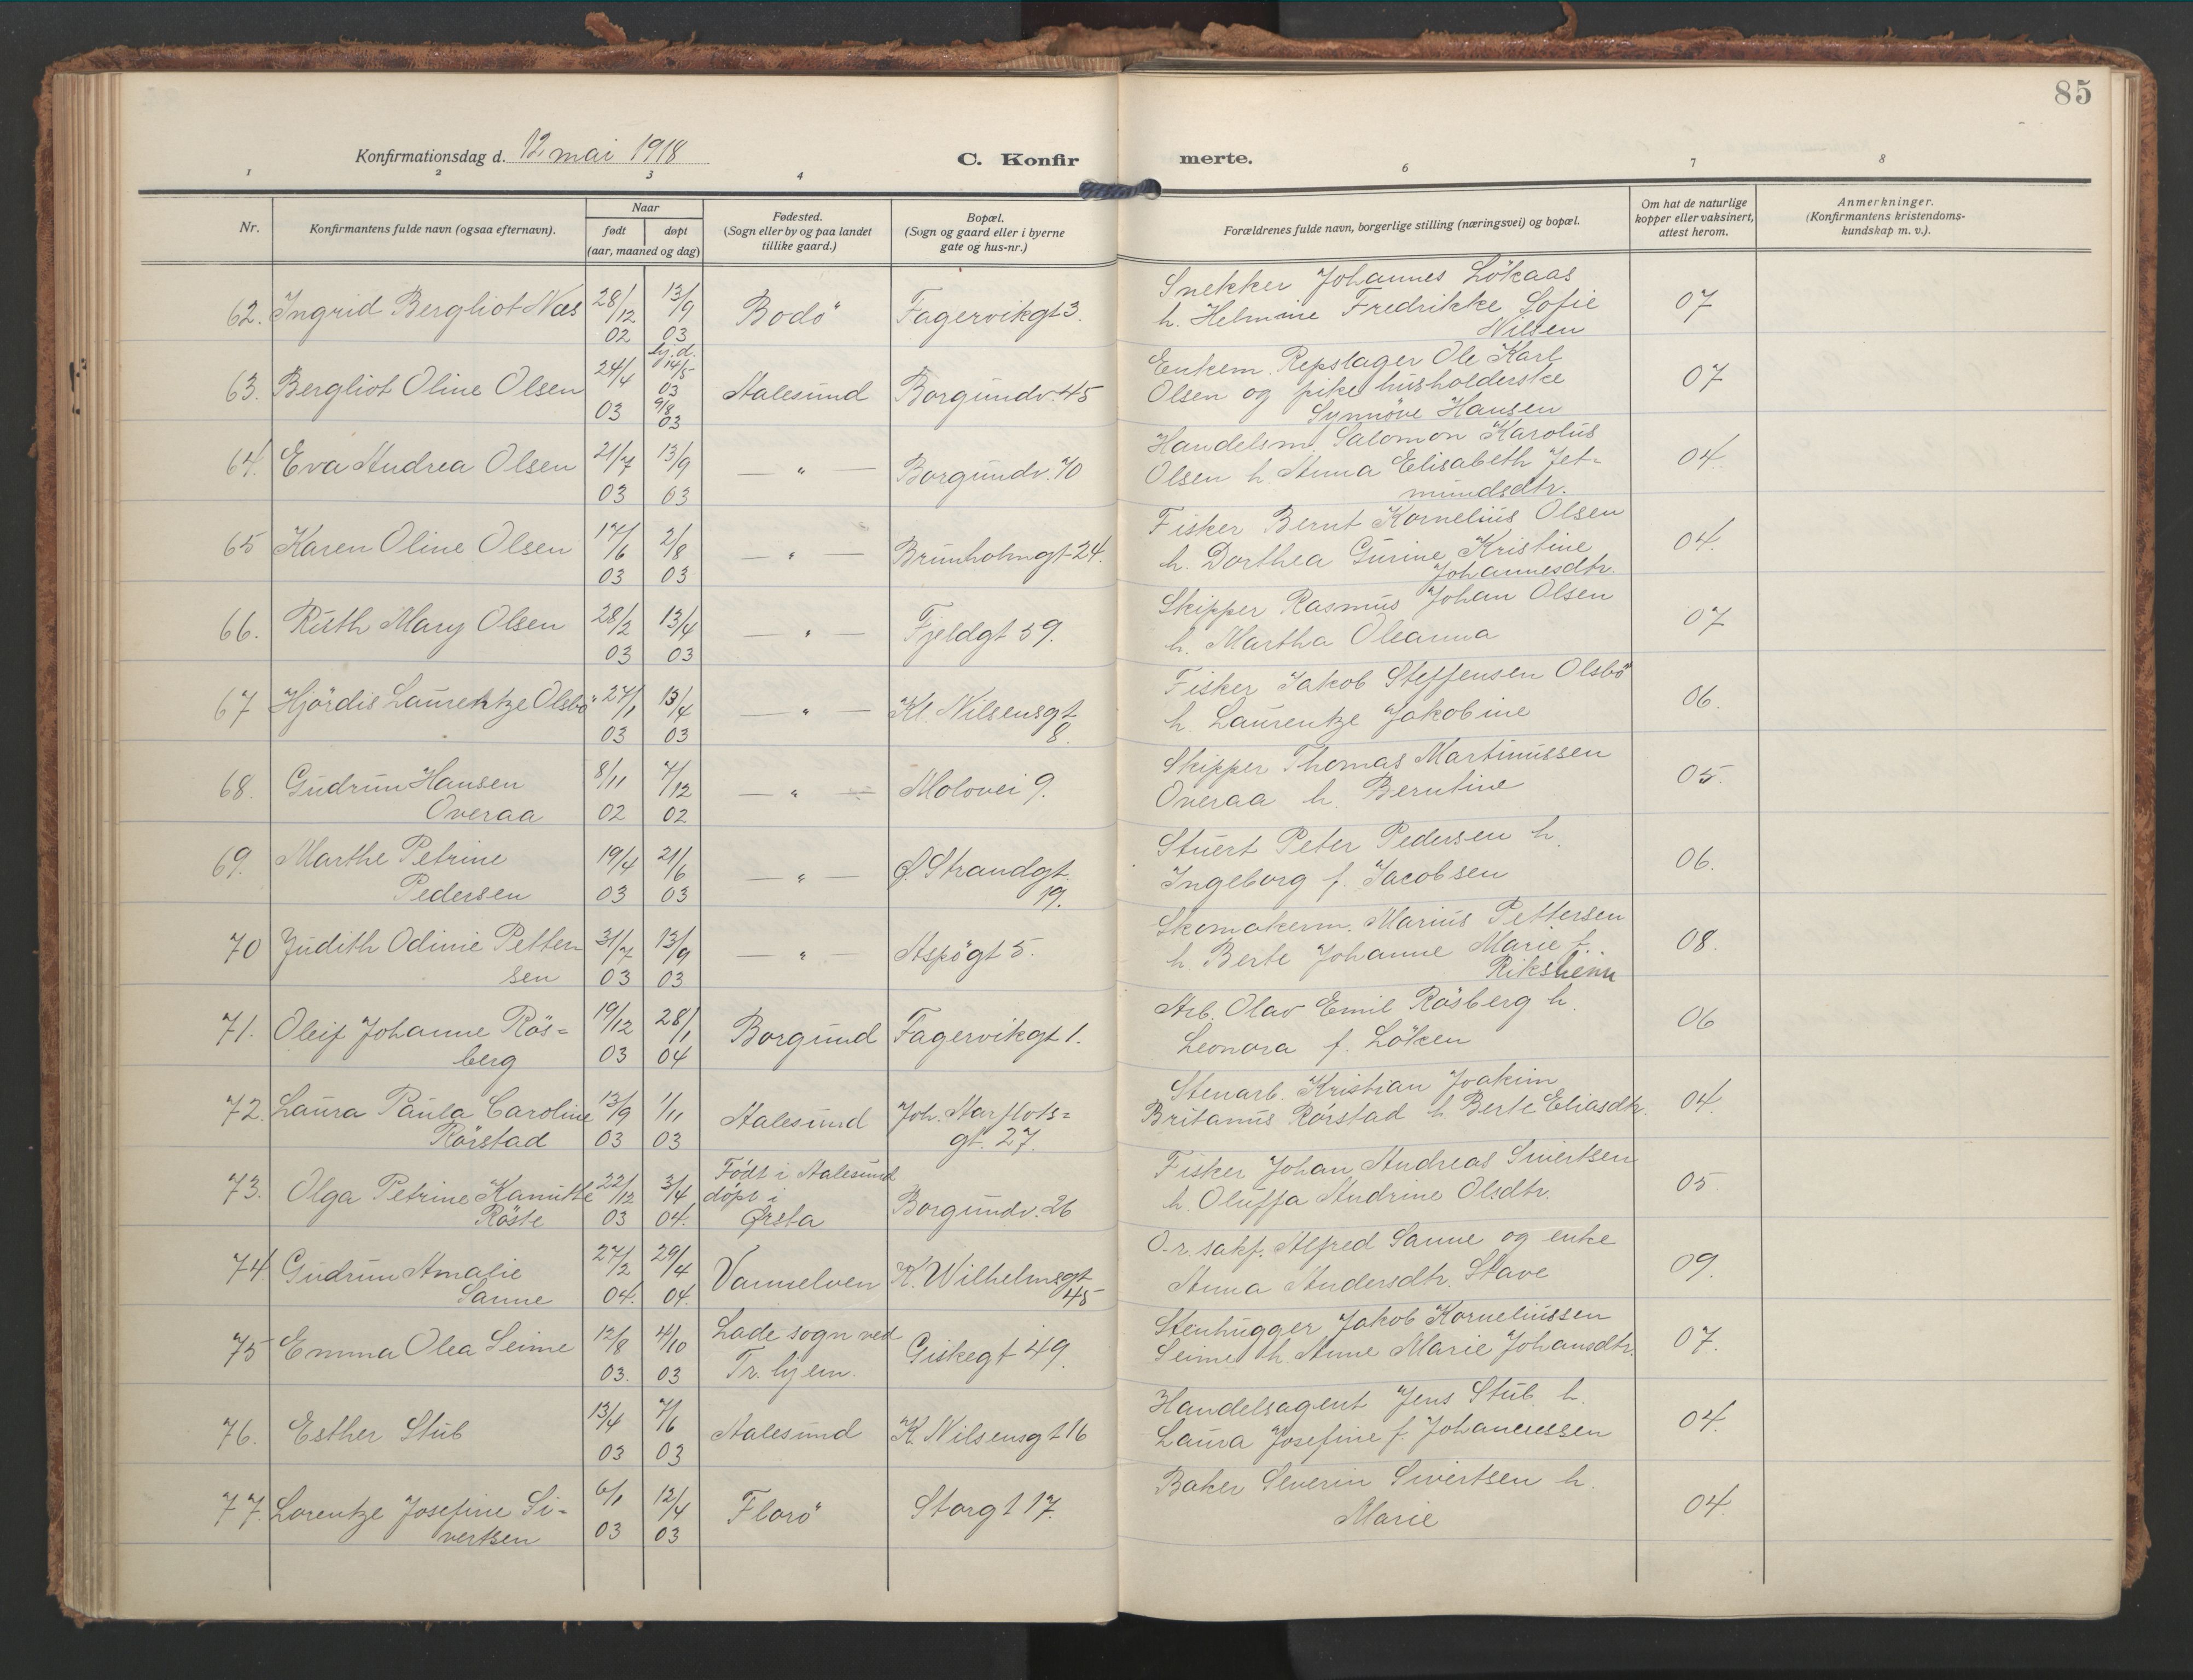 85
Konfirmationsdag d. 12 mai 1918
C. Konfir
merte.
1 2 3 4 6 7 8
Nr.
Konfirmantens fulde navn (ogsaa efternavn).
Naar
født døpt
(aar, maaned og dag)
Fødested.
(Sogn eller by og paa landet
tillike gaard.)
Bopæl.
(Sogn og gaard eller i byerne
gate og hus-nr.)
Forældrenes fulde navn, borgerlige stilling (næringsvei) og bopæl.
Om hat de naturlige
kopper eller vaksinert,
attest herom.
Anmerkninger.
(Konfirmantens kristendoms-
kundskap m. v.).
62. Ingrid Bergliot Næs 28/12 02 13/9 03 Bodö Fagervikgt 3.
Snekker Johannes Lökaas
h. Helmine Fredrikke Sofie
Nilsen
07
63. Bergliot Oline Olsen 24/4 03 hj.d. 14/5 03 9/8 03 Aalesund Borgundv. 45
Enkem. Repslager Ole Karl
Olsen og pike husholderske
Synnöve Hansen
07
64. Eva Andrea Olsen 21/7 03 13/9 03 — " — Borgundv. 70
Handelsm. Salomon Karolus
Olsen h. Anna Elisabeth Jet-
mundsdtr.
04.
65 Karen Oline Olsen 17/6 03 2/8 03 — " — Brunholmgt 24.
Fisker Bernt Kornelius Olsen
h. Dorthea Gurine Kristine
Johannesdtr.
04.
66. Ruth Mary Olsen 28/2 03 13/4 03 — " — Fjeldgt 59.
Skipper Rasmus Johan Olsen
h. Martha Oleanna
07
67 Hjördis Laurentze Olsbö 27/1 03 13/4 03 — " — Kl. Nilsensgt
8.
Fisker Jakob Steffensen Olsbö
h. Laurentze Jakobine
06.
68. Gudrun Hansen
Overaa
8/11 02 7/12 02 — " — Molovei 9.
Skipper Thomas Martinussen
Overaa h. Berntine
05.
69. Marthe Petrine
Pedersen
19/4 03 21/6 03 — " — Ø. Strandgt.
19.
Stuert Peter Pedersen h.
Ingeborg f. Jacobsen
06.
70 Judith Odinie Petter
sen
31/7 03 13/9 03 — " — Aspögt 5.
Skomakerm. Marius Pettersen
h. Berte Johanne Marie f.
Riksheim
08.
71. Oleif Johanne Rös=
berg
19/12 03 28/1 04 Borgund Fagervikgt 1.
Arb. Olav Emil Rösberg h.
Leonora f. Löken
06
72. Laura Paula Caroline
Rörstad
13/9 03 1/11 03 Aalesund Joh. Aarflots=
gt. 27.
Stenarb. Kristian Joakim
Britanus Rörstad h. Berte Eliasdtr.
04.
73. Olga Petrine Kamitte
Röste
22/12 03 3/4 04. Födt i Aalesund
döpt i
Ørsta
Borgundv. 26
Fisker Johan Andreas Sivertsen
h. Oluffa Andrine Olsdtr.
05.
74. Gudrun Amalie
Sanne
27/2 04. 29/4 04. Vannelven K. Wilhelmsgt
45
O.r.sakf. Alfred Sanne og enke
Anna Andersdtr. Stave
09.
75 Emma Olea Seime 12/8 03. 4/10 03 Lade sogn ved
Tr. hjem. Giskegt 49.
Stenhugger Jakob Korneliussen
Seime h. Anne Marie Johansdtr.
07.
76. Esther Stub 13/4 03 7/6 03 Aalesund K. Nilsensgt 16
Handelsagent Jens Stub h.
Laura Josefine f. Johannessen
04.
77. Lorentze Josefine Si-
vertsen
6/1 03 12/4 03 Florö Storgt 17.
Baker Severin Sivertsen h.
Marie
04.